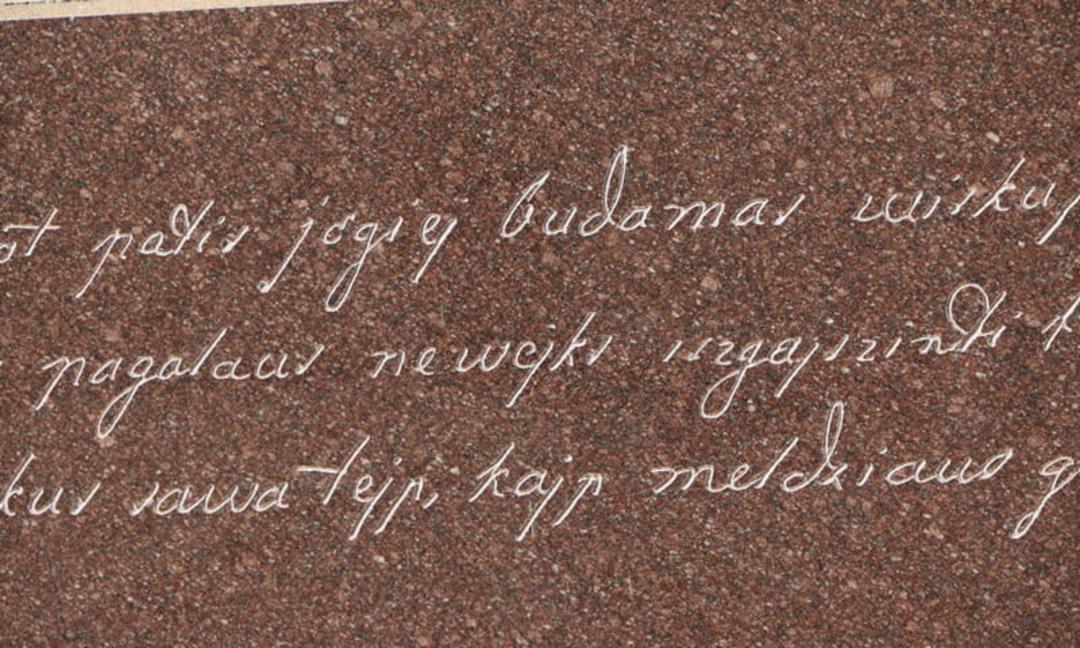 patis jogiej budamas wisku
pagalaus newejks iszgajszinti
kus sawa tejp, kajp meldziaus